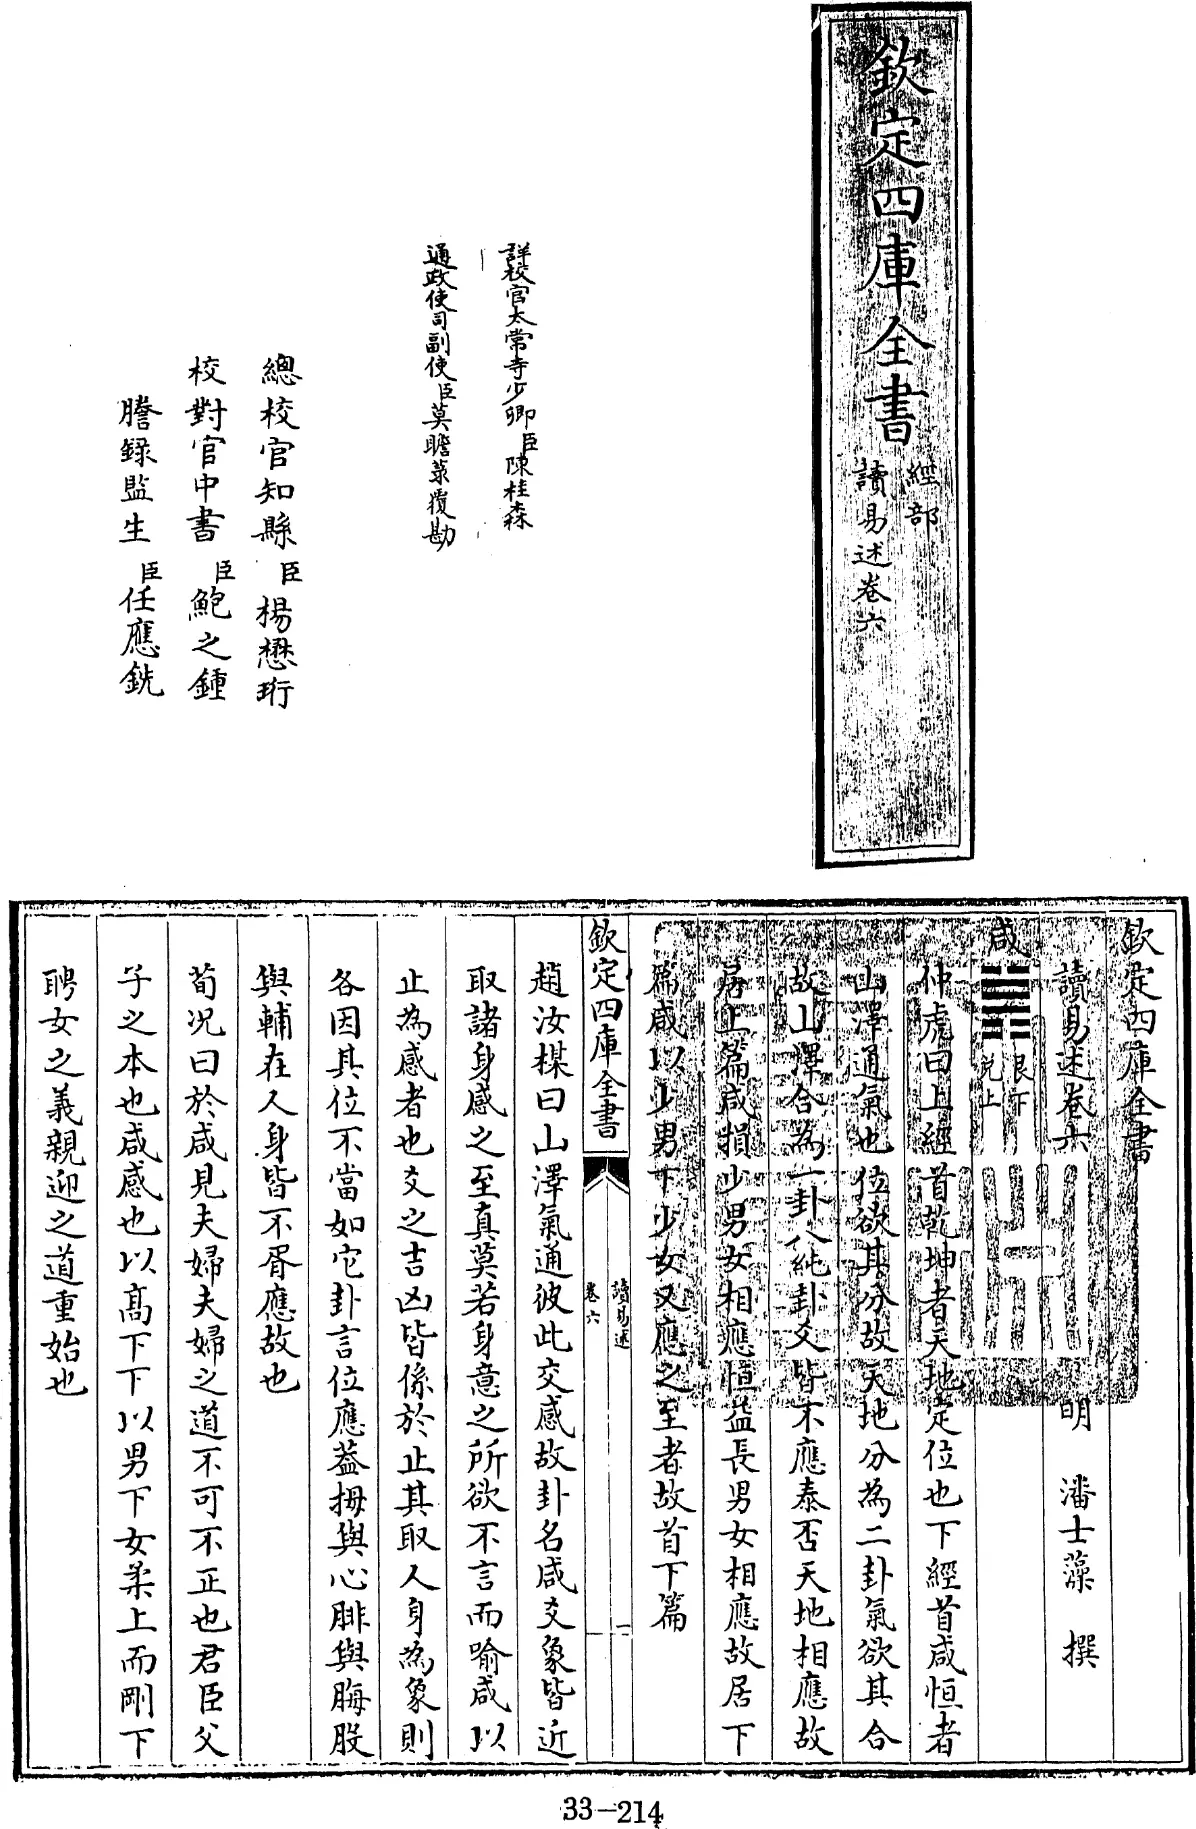 欽定四庫全書
經部
讀易述卷六
詳校官太常寺少卿臣陳桂森
通政使司副使臣莫瞻菉覆勘
總校官知縣臣楊懋珩
校對官中書臣鮑之鍾
謄録監生臣任應銑
欽定四庫全書
讀易述卷六
明 潘士藻 撰
咸
艮下
兌上
仲虎曰上經首乾坤者天地定位也下經首咸恒者
山澤通氣也位欲其分故天地分為二卦氣欲其合
故山澤合為一卦八純卦爻皆不應泰否天地相應故
居上篇咸損少男女相應恒益長男女相應故居下
篇咸以少男下少女又應之至者故首下篇
欽定四庫全書
讀易述
卷六
一
趙汝楳曰山澤氣通彼此交感故卦名咸爻象皆近
取諸身感之至真莫若身意之所欲不言而喻咸以
止為感者也爻之吉凶皆係於止其取人身為象則
各因其位不當如它卦言位應葢拇與心腓與脢股
與輔在人身皆不胥應故也
荀况曰於咸見夫婦夫婦之道不可不正也君臣父
子之本也咸感也以髙下下以男下女柔上而剛下
聘女之義親迎之道重始也
33-214